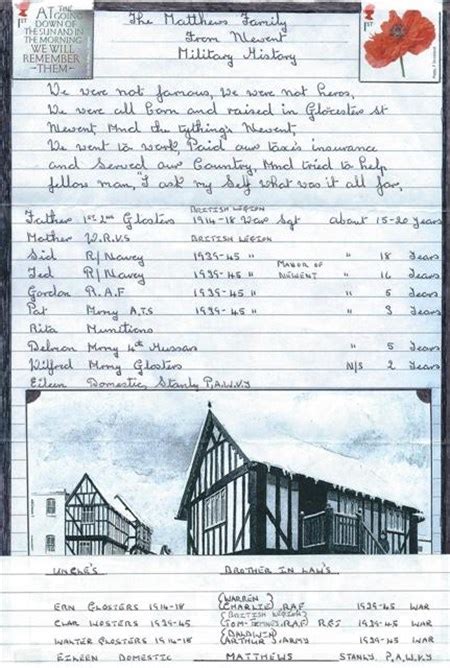 AT THE
GOING
DOWN OF
THE SUN AND IN
THE MORNING
WE WILL
REMEMBER
—THEM—
1st
1st
The Matthews Family
From Newent
Military History
We were not famous, We were not heros,
We were all born and raised in Glocester st
Newent, And the tything's Newent,
We went to work, Paid our taxis insurance
and Served our Country, And tried to help
fellow man, "I ask my Self what was it all for,
BRITISH LEGION
Father 1st 2nd Glosters 1914-18 War Sgt about 15-20 Years
Mother W.R.V.S BRITISH LEGION
Sid R/Navey 1939-45 " " 18 Years
MANOR OF
Ted R/Navey 1939-45 " NEWENT " 16 Years
Gordon R.A.F 1939-45 " " 5 Years
Pat A.T.S 1939-45 " " 3 Years
Rita Munitions
4th Hussars " 5 Years
Wilford Glosters N/S 2 Years
Eileen Domestic, Stanly P,A,W,V,Y
UNCLE'S BROTHER IN LAW'S
(WARREN)
ERN GLOSTERS 1914-18 (CHARLIE) RAF 1939-45 WAR
(BRITISH LEGION)
CLAR WOSTERS 1939-45 TOM RAF 1939-45 WAR
(BALDWIN)
WALTER GLOSTERS 1914-18 ARTHUR ARMY 1939-45 WAR
EILEEN DOMESTIC MATTHEWS STANLY P,A,W,V,Y